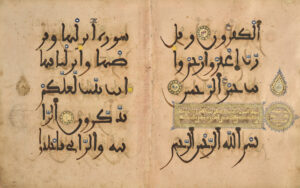 الكفرون وقل
رب اغفر وارحم وا
نت خير الرحمين
بسم الله الرحمن الرحيم
سورة انزلنها وفر
ضنها وانزلنا فيها
ايت بينت لعلكم
تذكرون الزا
نية والزاني فاجلدوا